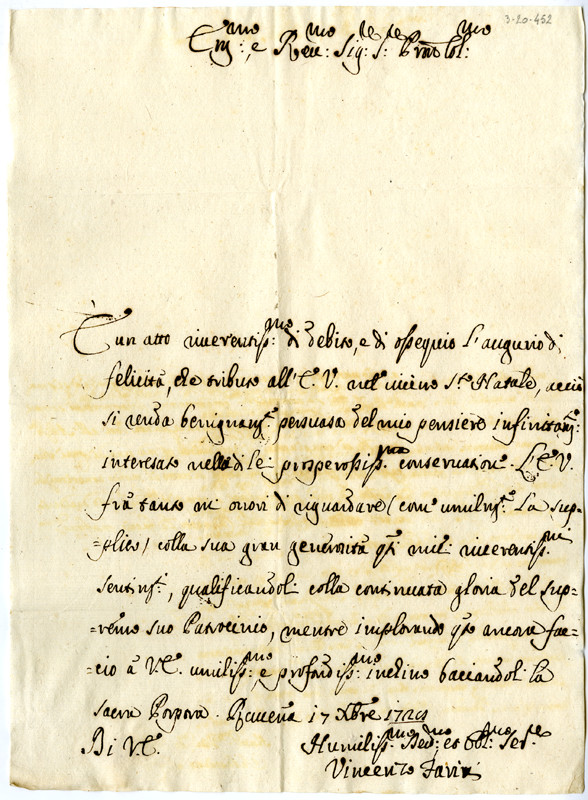 3-20-452
Em:mo, e Reu:mo Sig:re S:re Pron Col:mo
È un atto riuerentiss:mo di debito, e di ossequio l'augurio di
felicità, che tributo all'E. V. nel uicino S.to Natale, acciò
si renda benignam.te persuasa del mio pensiere infinitam.te
interessato nella di lei prosperosiss.ma conseruatione. L'E. V.
frà tanto mi onori di riguardare (come umilm.te La sup=
=plico) colla sua gran generosità q.ti miei riuerentiss.mi
sentim.ti, qualificandoli colla continuata gloria del sup=
=remo suo Patrocinio, mentre implorando q.to ancora fac=
=cio à V.E. umiliss:mo, e profondiss:mo inclino baciandoli la
sacra Porpora. Rauena 17 Xbre
Di V.E.
Humiliss:mo Deu:mo et Obl:mo Ser.re
Vincenzo